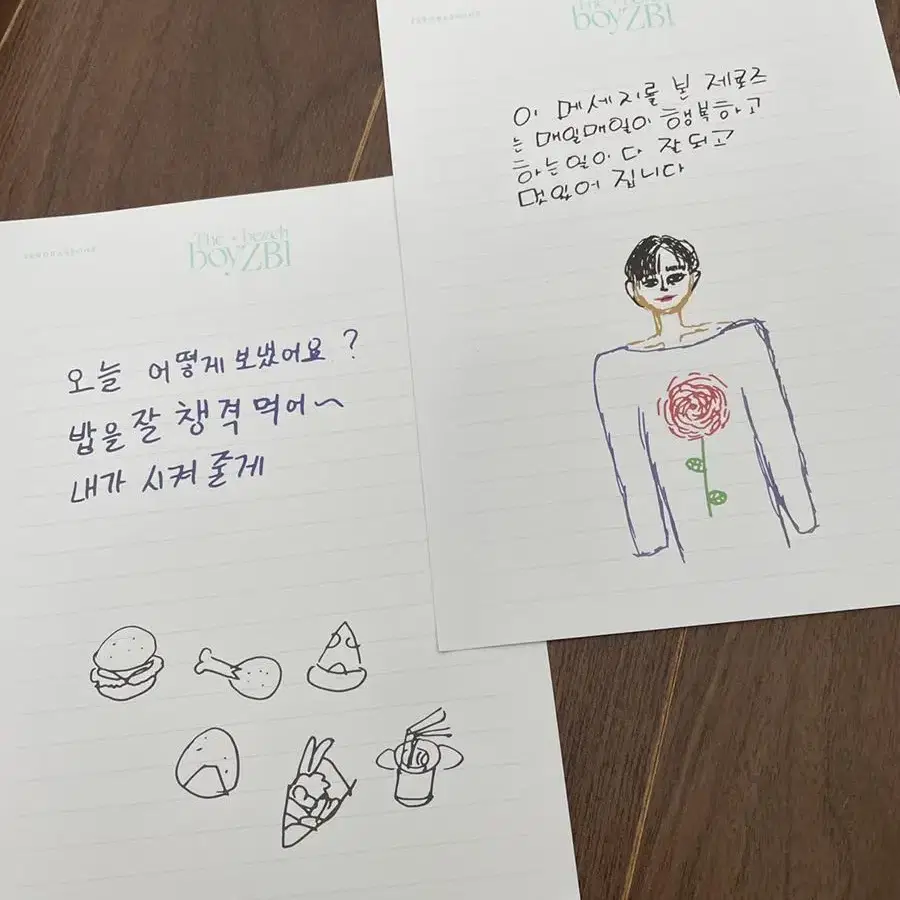 The beach
boyZB1
오늘 어떻게 보냈어요?
밥을 잘 챙격 먹어~
내가 시켜 줄게
ZEROBASEONE
The beach
boyZB1
이 메세지를 본 제로즈
는 매일매일이 행복하고
하는일이 다 잘 되고
멋있어 집니다